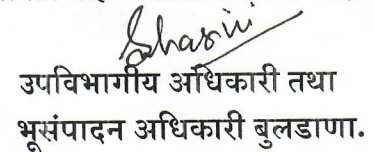 उपविभागीय अधिकारी तथा
भूसंपादन अधिकारी बुलडाणा.